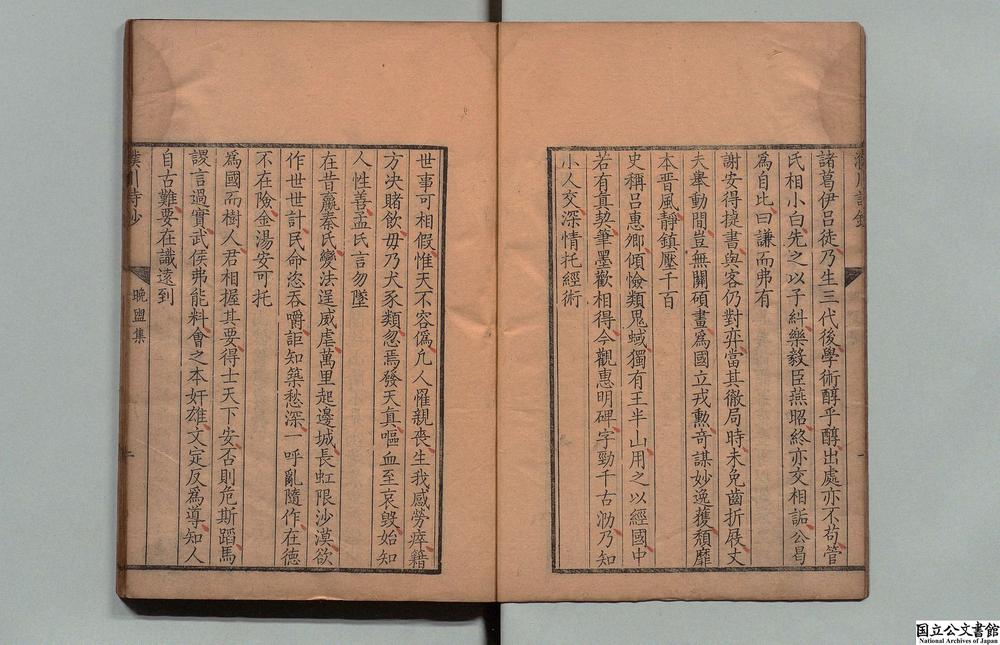 諸葛伊呂徒乃生三代後學術醇乎醇出處亦不苟管
氏相小白先之以子糾樂毅臣燕昭終亦交相詬公曷
為自比曰謙而弗有
謝安得捷書與客仍對弈當其徹局時未免齒折屐丈
夫舉動間豈無關碩畫為國立戎勲奇謀妙逸獲頹靡
本晉風靜鎮壓千百
史稱呂惠卿傾憸類鬼蜮獨有王半山用之以經國中
若有真契筆墨歡相得今觀惠明碑字勁千古泐乃知
小人交深情托經術
世事可相假惟天不容僞凡人懼親喪生我感勞瘁籍
方决賭飲毋乃犬豕類忽焉發天真嘔血至哀毀始知
人性善孟氏言勿墜
在昔嬴秦氏變法逞威虐萬里起邊城長虹限沙漠欲
作世世計民命恣吞嚼詎知築愁深一呼亂隨作在德
不在險金湯安可托
為國而樹人君相握其要得士天下安否則危斯蹈馬
謖言過實武侯弗能料會之本奸雄文定反為導知人
自古難要在識遠到
晚盥集
国立公文書館
National Archives of Japan